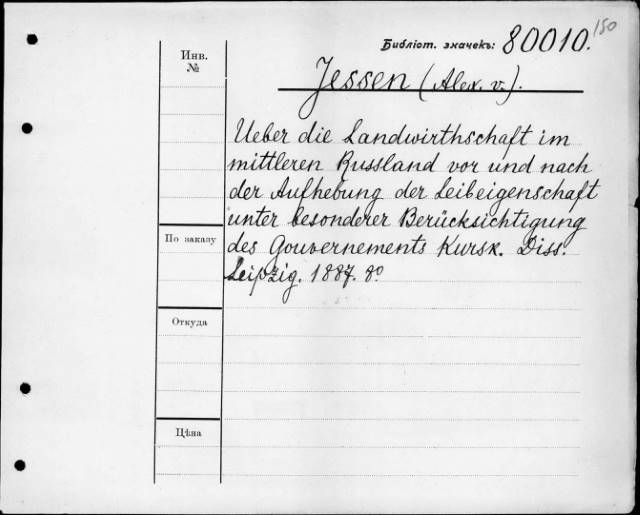 150
Библіот. значекъ: 80010.
Инв.
№
Jessen (Alex. v.).
Ueber die Landwirthschaft im
mittleren Russland vor und nach
der Aufhebung der Leibeigenschaft
unter besonderer Berücksichtigung
По заказу
des Gouvernements Kursk. Diss.
Leipzig. 1887. 8º
Откуда
Цѣна